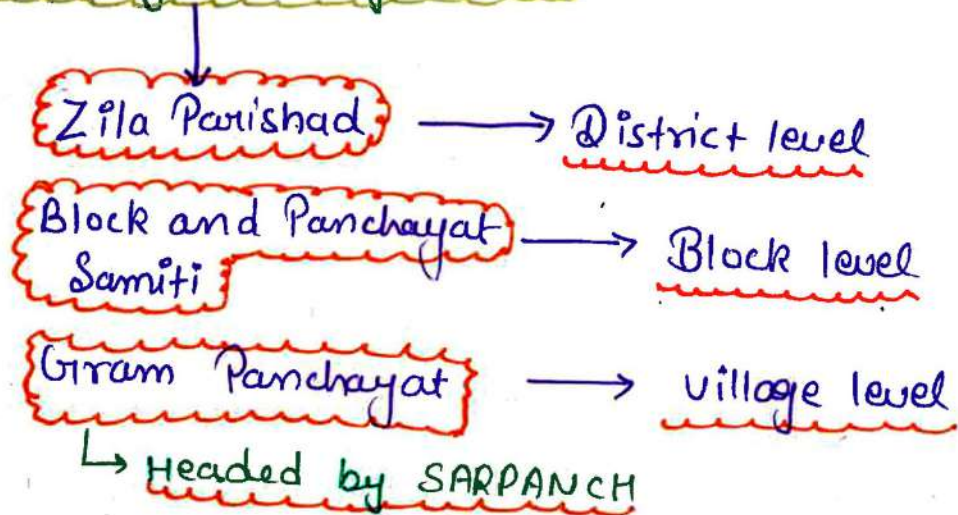 Zila Parishad → District level
Block and Panchayat → Block level
Samiti
Gram Panchayat → village level
↳ Headed by SARPANCH